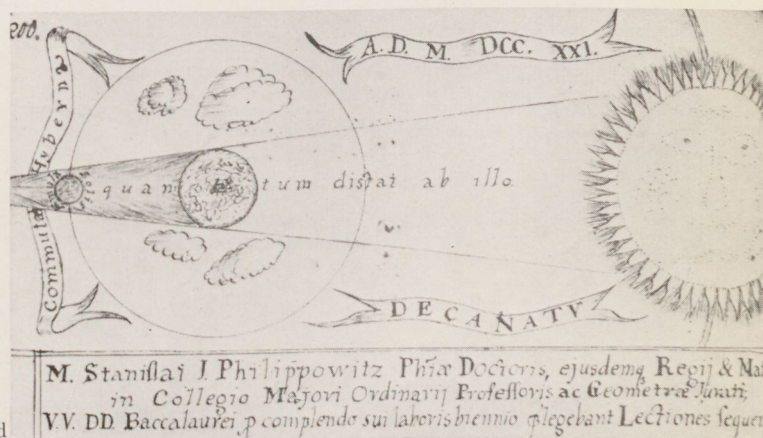 A. D. M. DCC. XXI.
Commutatæ Hybernæ
quantum distat ab illo
DECANATV
M. Stanislai J. Philippowitz Phiæ Doctoris, ejusdemq Regij &
in Collegio Majori Ordinarij Professoris ac Geometræ Jurati,
V.V. DD. Baccalaurei p complendo sui laboris biennio plegebant Lectiones